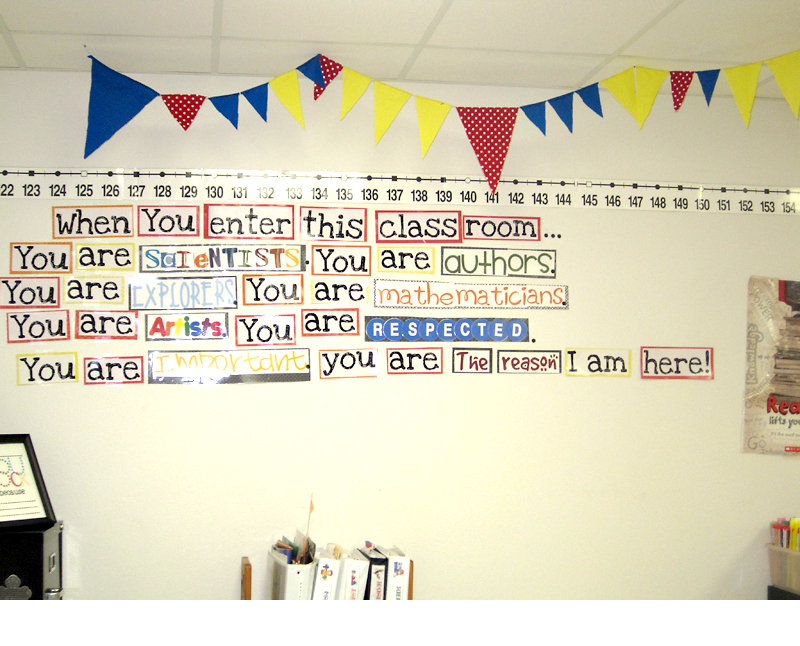 22 123 124 125 126 127 128 129 130 131 132 133 134 135 136 137 138 139 140 141 142 143 144 145 146 147 148 149 150 151 152 153 154
When You enter this class room...
You are SCIENTISTS. You are authors.
You are EXPLORERS. You are mathematicians.
You are Artists. You are RESPECTED.
You are Important. you are The reason I am here!
Rea
lifts you
because